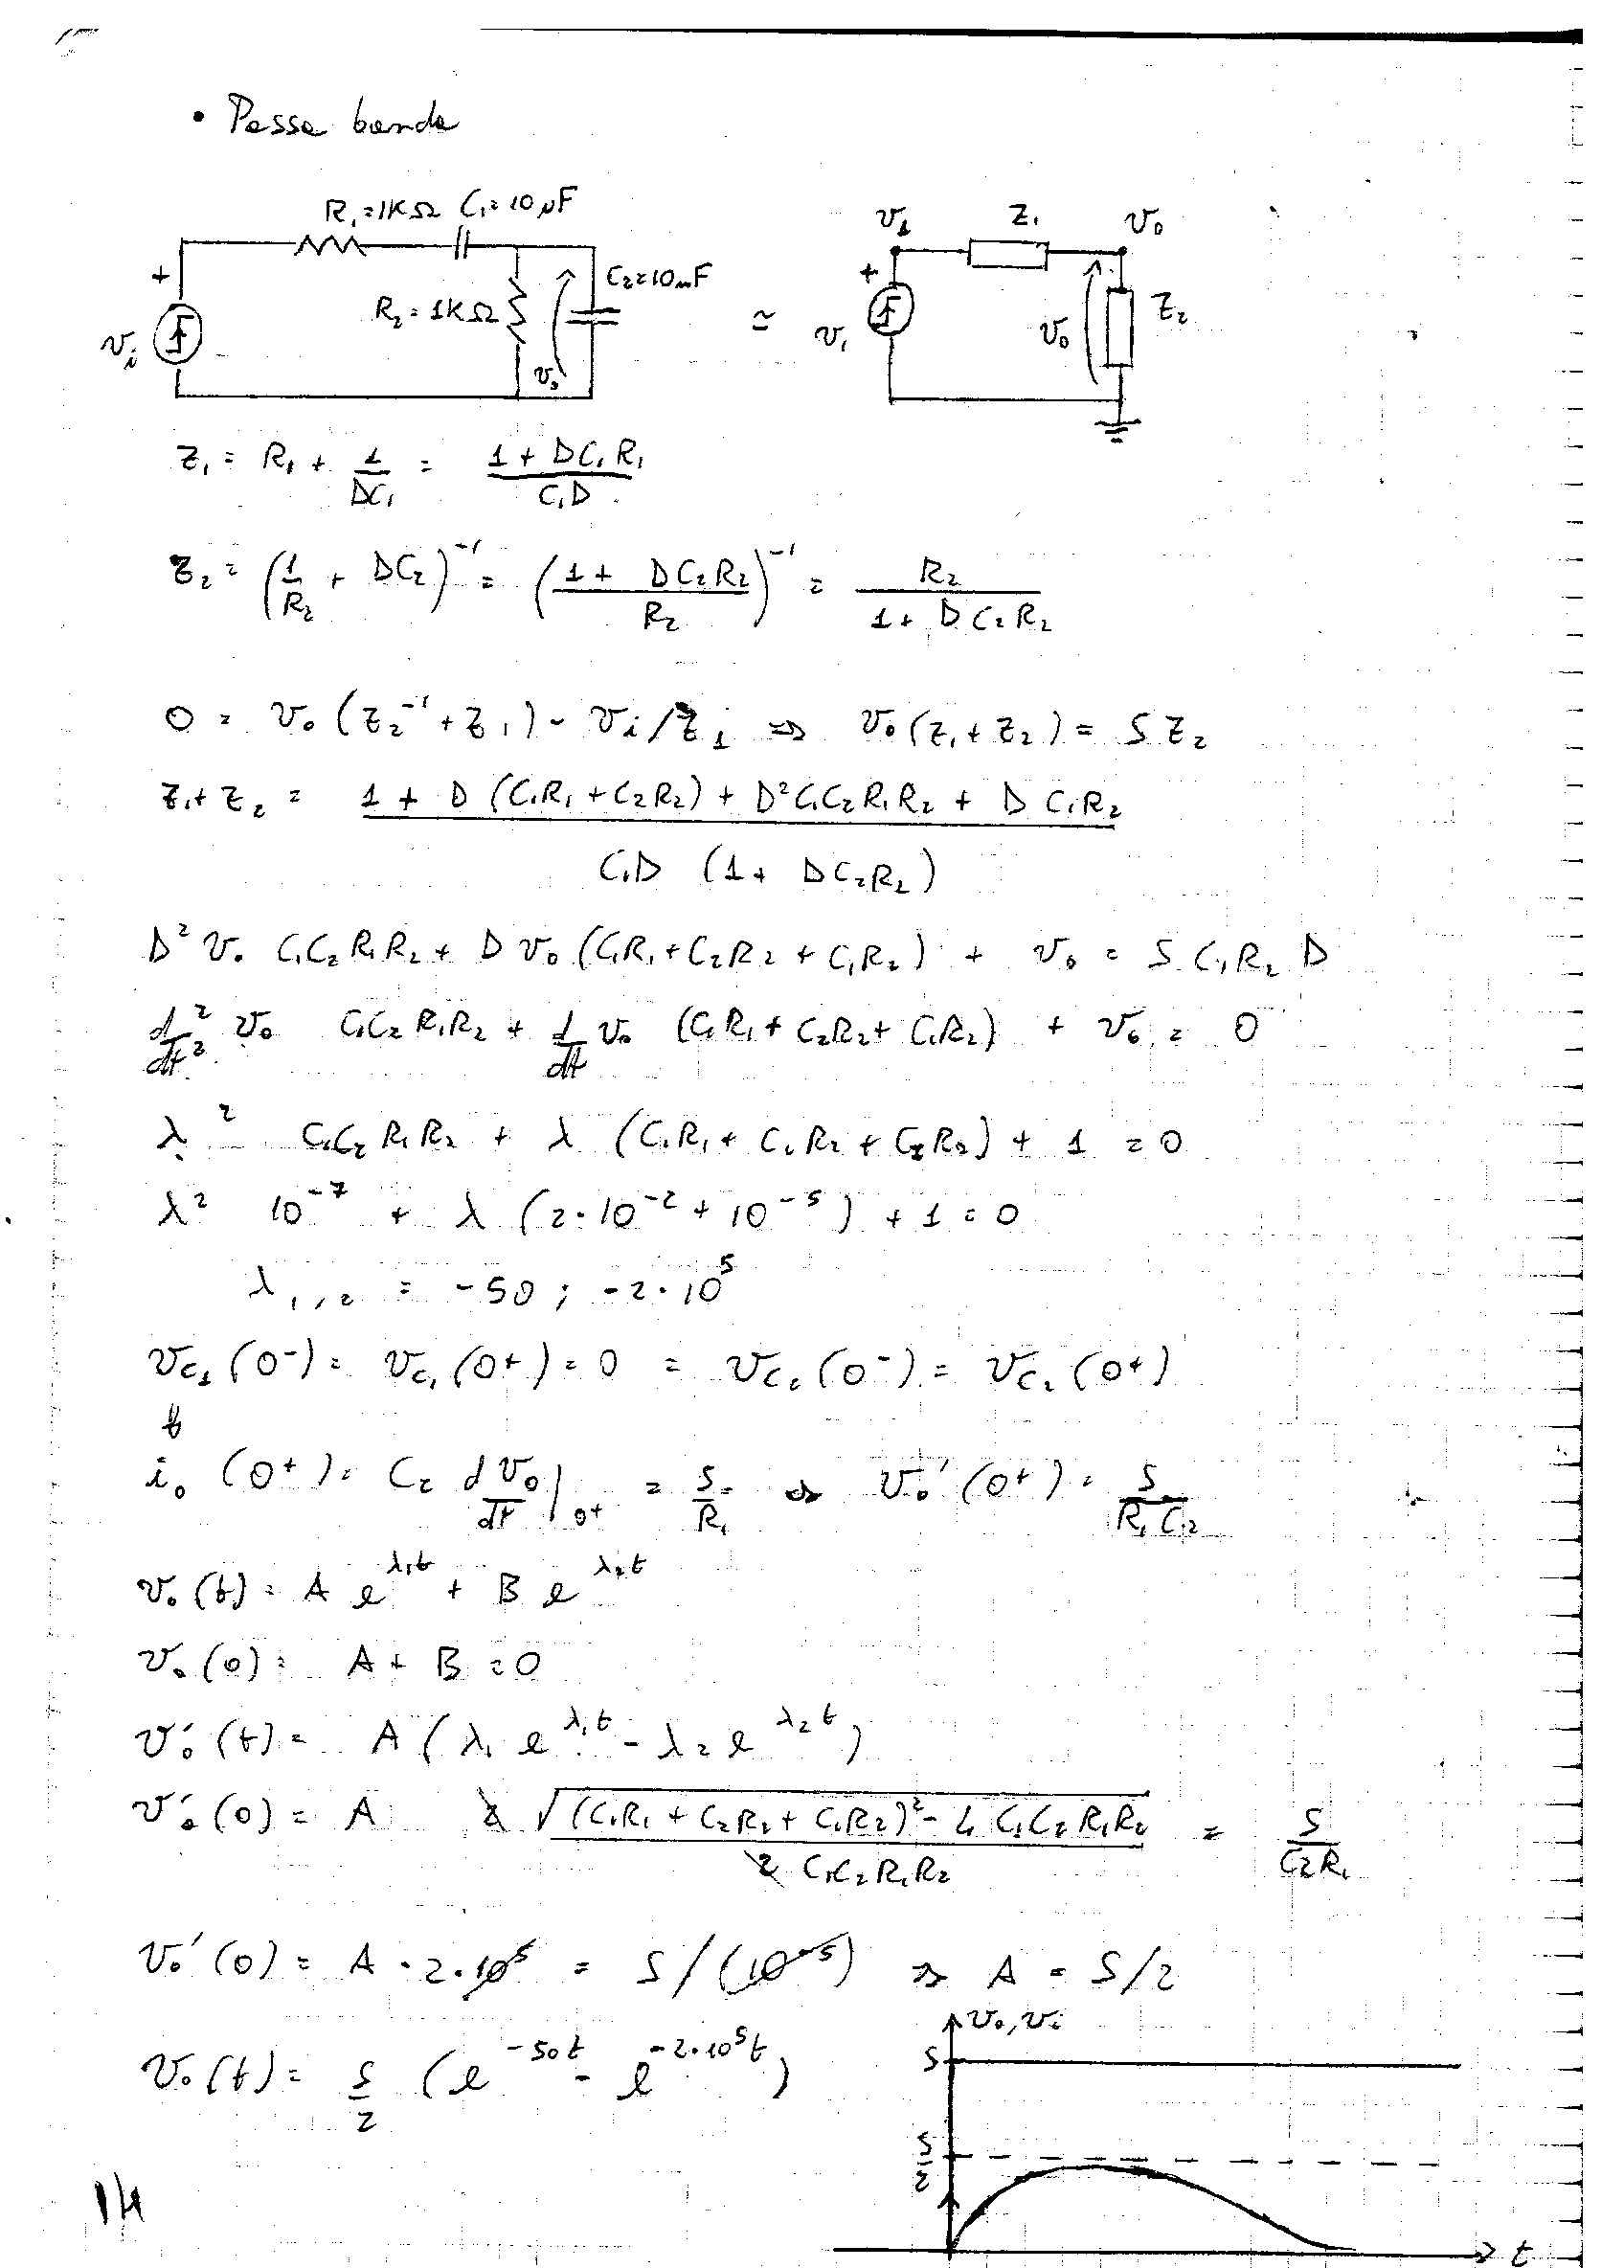 • Passa banda
R₁=1KΩ C₁=10μF
R₂=1KΩ
C₂=10nF
+
vᵢ
v₀
≃
v₁
Z₁
v₀
+
vᵢ
v₀
Z₂
Z₁ = R₁ + 1/(DC₁) = (1 + DC₁R₁)/(C₁D)
Z₂ = (1/R₂ + DC₂)⁻¹ = ((1 + DC₂R₂)/R₂)⁻¹ = R₂/(1 + DC₂R₂)
0 = v₀(Z₂⁻¹ + Z₁) - vᵢ/Z₁ ⇒ v₀(Z₁+Z₂) = 5 Z₂
Z₁+Z₂ = (1 + D(C₁R₁+C₂R₂) + D²C₁C₂R₁R₂ + DC₁R₂)/(C₁D(1 + DC₂R₂))
D²v₀ C₁C₂R₁R₂ + Dv₀(C₁R₁+C₂R₂+C₁R₂) + v₀ = 5 C₁R₂ D
d²/dt² v₀ C₁C₂R₁R₂ + d/dt v₀ (C₁R₁+C₂R₂+C₁R₂) + v₀ = 0
λ² C₁C₂R₁R₂ + λ(C₁R₁+C₁R₂+C₂R₂) + 1 = 0
λ² 10⁻⁷ + λ(2·10⁻²+10⁻⁵) + 1 = 0
λ₁,₂ = -50 ; -2·10⁵
v_C₁(0⁻) = v_C₁(0⁺) = 0 = v_C₂(0⁻) = v_C₂(0⁺)
⇓
i₀(0⁺) = C₂ dv₀/dt|₀⁺ = 5/R₁ ⇒ v₀'(0⁺) = 5/(R₁C₂)
v₀(t) = A e^λ₁t + B e^λ₂t
v₀(0) = A + B = 0
v₀'(t) = A(λ₁ e^λ₁t - λ₂ e^λ₂t)
v₀'(0) = A 2 √((C₁R₁+C₂R₂+C₁R₂)² - 4C₁C₂R₁R₂)/(2 C₁C₂R₁R₂) = 5/(C₂R₁)
v₀'(0) = A·2·10⁵ = 5/(10⁻⁵) ⇒ A = 5/2
v₀(t) = 5/2 (e^-50t - e^-2·10⁵t)
v₀,vᵢ
5
5/2
t
14